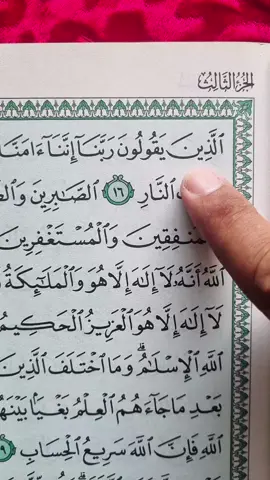 الجزء الثالث
الَّذِينَ يَقُولُونَ رَبَّنَآ إِنَّنَآ ءَامَنَّا
النَّارِ ١٦ الصَّٰبِرِينَ
وَالْمُسْتَغْفِرِينَ
اللَّهُ أَنَّهُۥ لَآ إِلَٰهَ إِلَّا هُوَ وَالْمَلَٰٓئِكَةُ
لَآ إِلَٰهَ إِلَّا هُوَ الْعَزِيزُ الْحَكِيمُ
اللَّهِ الْإِسْلَٰمُ ۗ وَمَا اخْتَلَفَ الَّذِينَ
بَعْدِ مَا جَآءَهُمُ الْعِلْمُ بَغْيًۢا بَيْنَهُمْ
اللَّهِ فَإِنَّ اللَّهَ سَرِيعُ الْحِسَابِ